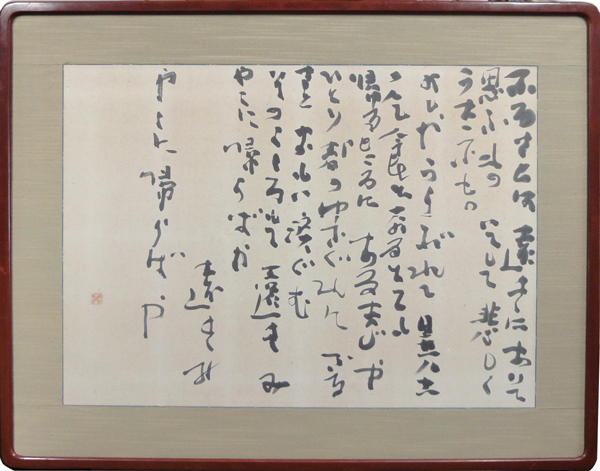 ふるさとは遠きにありて
思ふもの そして悲しく
うたふもの
よしやうらぶれて異土の
食となるとても
帰るところにあるまじや
ひとり都のゆふぐれに ふる
さとおもひ涙ぐむ
そのこころもて遠きみ
やこに帰らばや
遠きみ
やこに帰らばや